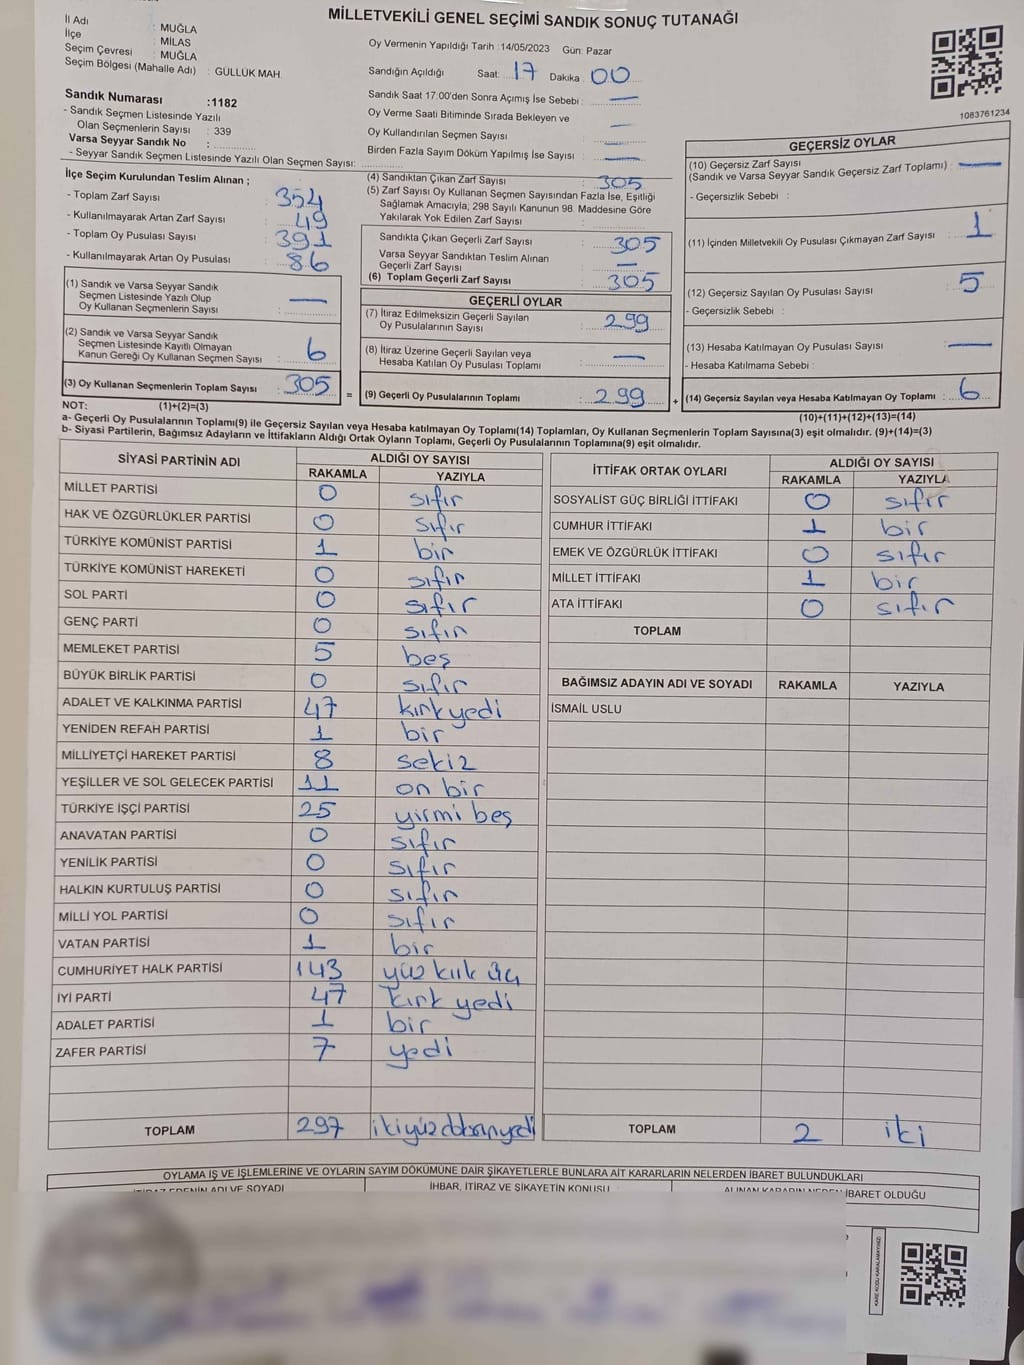 MİLLETVEKİLİ GENEL SEÇİMİ SANDIK SONUÇ TUTANAĞI
İl Adı : MUĞLA
İlçe : MİLAS
Seçim Çevresi : MUĞLA
Seçim Bölgesi (Mahalle Adı) : GÜLLÜK MAH.
Sandık Numarası :1182
- Sandık Seçmen Listesinde Yazılı
Olan Seçmenlerin Sayısı : 339
Varsa Seyyar Sandık No :
- Seyyar Sandık Seçmen Listesinde Yazılı Olan Seçmen Sayısı:
Oy Vermenin Yapıldığı Tarih : 14/05/2023 Gün: Pazar
Sandığın Açıldığı Saat: 17 Dakika : 00
Sandık Saat 17:00'den Sonra Açımış İse Sebebi : —
Oy Verme Saati Bitiminde Sırada Bekleyen ve
Oy Kullandırılan Seçmen Sayısı : —
Birden Fazla Sayım Döküm Yapılmış İse Sayısı : —
1083761234
İlçe Seçim Kurulundan Teslim Alınan ;
- Toplam Zarf Sayısı : 354
- Kullanılmayarak Artan Zarf Sayısı : 49
- Toplam Oy Pusulası Sayısı : 391
- Kullanılmayarak Artan Oy Pusulası : 86
(1) Sandık ve Varsa Seyyar Sandık
Seçmen Listesinde Yazılı Olup
Oy Kullanan Seçmenlerin Sayısı : —
(2) Sandık ve Varsa Seyyar Sandık
Seçmen Listesinde Kayıtlı Olmayan
Kanun Gereği Oy Kullanan Seçmen Sayısı : 6
(3) Oy Kullanan Seçmenlerin Toplam Sayısı : 305
(4) Sandıktan Çıkan Zarf Sayısı : 305
(5) Zarf Sayısı Oy Kullanan Seçmen Sayısından Fazla İse, Eşitliği
Sağlamak Amacıyla; 298 Sayılı Kanunun 98. Maddesine Göre
Yakılarak Yok Edilen Zarf Sayısı :
Sandıkta Çıkan Geçerli Zarf Sayısı : 305
Varsa Seyyar Sandıktan Teslim Alınan
Geçerli Zarf Sayısı : —
(6) Toplam Geçerli Zarf Sayısı : 305
GEÇERLİ OYLAR
(7) İtiraz Edilmeksizin Geçerli Sayılan
Oy Pusulalarının Sayısı : 299
(8) İtiraz Üzerine Geçerli Sayılan veya
Hesaba Katılan Oy Pusulası Toplamı : —
= (9) Geçerli Oy Pusulalarının Toplamı : 299 +
GEÇERSİZ OYLAR
(10) Geçersiz Zarf Sayısı
(Sandık ve Varsa Seyyar Sandık Geçersiz Zarf Toplamı) : —
- Geçersizlik Sebebi :
(11) İçinden Milletvekili Oy Pusulası Çıkmayan Zarf Sayısı : 1
(12) Geçersiz Sayılan Oy Pusulası Sayısı : 5
- Geçersizlik Sebebi :
(13) Hesaba Katılmayan Oy Pusulası Sayısı : —
- Hesaba Katılmama Sebebi :
(14) Geçersiz Sayılan veya Hesaba Katılmayan Oy Toplamı : 6
NOT: (1)+(2)=(3) (10)+(11)+(12)+(13)=(14)
a- Geçerli Oy Pusulalarının Toplamı(9) ile Geçersiz Sayılan veya Hesaba Katılmayan Oy Toplamı(14) Toplamları, Oy Kullanan Seçmenlerin Toplam Sayısına(3) eşit olmalıdır. (9)+(14)=(3)
b- Siyasi Partilerin, Bağımsız Adayların ve İttifakların Aldığı Ortak Oyların Toplamı, Geçerli Oy Pusulalarının Toplamına(9) eşit olmalıdır.
SİYASİ PARTİNİN ADI ALDIĞI OY SAYISI
RAKAMLA YAZIYLA
MİLLET PARTİSİ 0 sıfır
HAK VE ÖZGÜRLÜKLER PARTİSİ 0 sıfır
TÜRKİYE KOMÜNİST PARTİSİ 1 bir
TÜRKİYE KOMÜNİST HAREKETİ 0 sıfır
SOL PARTİ 0 sıfır
GENÇ PARTİ 0 sıfır
MEMLEKET PARTİSİ 5 beş
BÜYÜK BİRLİK PARTİSİ 0 sıfır
ADALET VE KALKINMA PARTİSİ 47 kırkyedi
YENİDEN REFAH PARTİSİ 1 bir
MİLLİYETÇİ HAREKET PARTİSİ 8 sekiz
YEŞİLLER VE SOL GELECEK PARTİSİ 11 on bir
TÜRKİYE İŞÇİ PARTİSİ 25 yirmi beş
ANAVATAN PARTİSİ 0 sıfır
YENİLİK PARTİSİ 0 sıfır
HALKIN KURTULUŞ PARTİSİ 0 sıfır
MİLLİ YOL PARTİSİ 0 sıfır
VATAN PARTİSİ 1 bir
CUMHURİYET HALK PARTİSİ 143 yüz kırk üç
İYİ PARTİ 47 kırk yedi
ADALET PARTİSİ 1 bir
ZAFER PARTİSİ 7 yedi
TOPLAM 297 ikiyüzdoksanyedi
İTTİFAK ORTAK OYLARI ALDIĞI OY SAYISI
RAKAMLA YAZIYLA
SOSYALİST GÜÇ BİRLİĞİ İTTİFAKI 0 sıfır
CUMHUR İTTİFAKI 1 bir
EMEK VE ÖZGÜRLÜK İTTİFAKI 0 sıfır
MİLLET İTTİFAKI 1 bir
ATA İTTİFAKI 0 sıfır
TOPLAM
BAĞIMSIZ ADAYIN ADI VE SOYADI RAKAMLA YAZIYLA
İSMAİL USLU
TOPLAM 2 iki
OYLAMA İŞ VE İŞLEMLERİNE VE OYLARIN SAYIM DÖKÜMÜNE DAİR ŞİKAYETLERLE BUNLARA AİT KARARLARIN NELERDEN İBARET BULUNDUKLARI
İHBAR, İTİRAZ VE ŞİKAYETİN KONUSU
İBARET OLDUĞU
KARE KODU KARALAMAYINIZ!